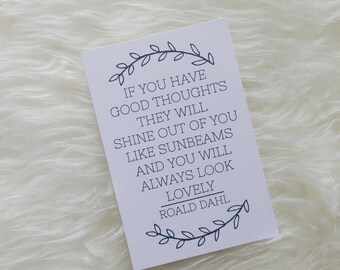 IF YOU HAVE
GOOD THOUGHTS
THEY WILL
SHINE OUT OF YOU
LIKE SUNBEAMS
AND YOU WILL
ALWAYS LOOK
LOVELY
ROALD DAHL